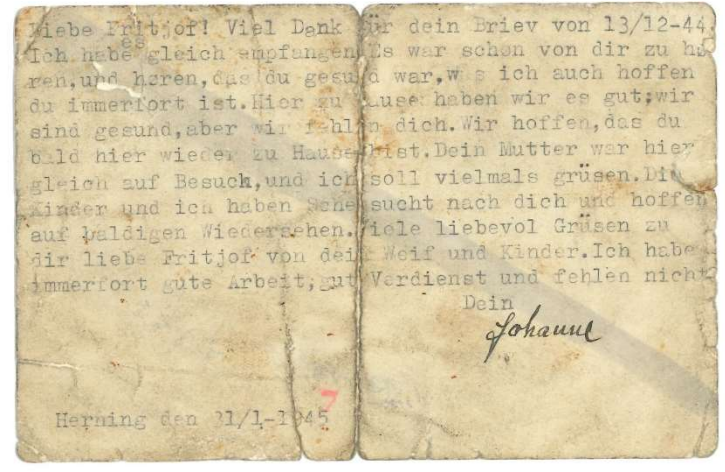 Liebe Fritjof! Viel Dank für dein Briev von 13/12-44
es
Ich habe gleich empfangen Es war schon von dir zu hö
ren,und hören,das du gesund war,was ich auch hoffen
du immerfort ist.Hier zu Hause haben wir es gut;wir
sind gesund,aber wir fehlen dich.Wir hoffen,das du
bald hier wieder zu Hause bist.Dein Mutter war hier
gleich auf Besuch,und ich soll vielmals grüsen.Die
Kinder und ich haben Sehnsucht nach dich und hoffen
auf baldigen Wiedersehen.Viele liebevol Grüsen zu
dir liebe Fritjof von dein Weif und Kinder.Ich habe
immerfort gute Arbeit,gut Verdienst und fehlen nicht
Dein
Johanne
7
Herning den 31/1-1945